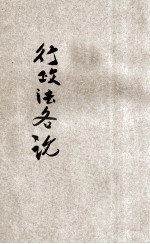 行政法各說